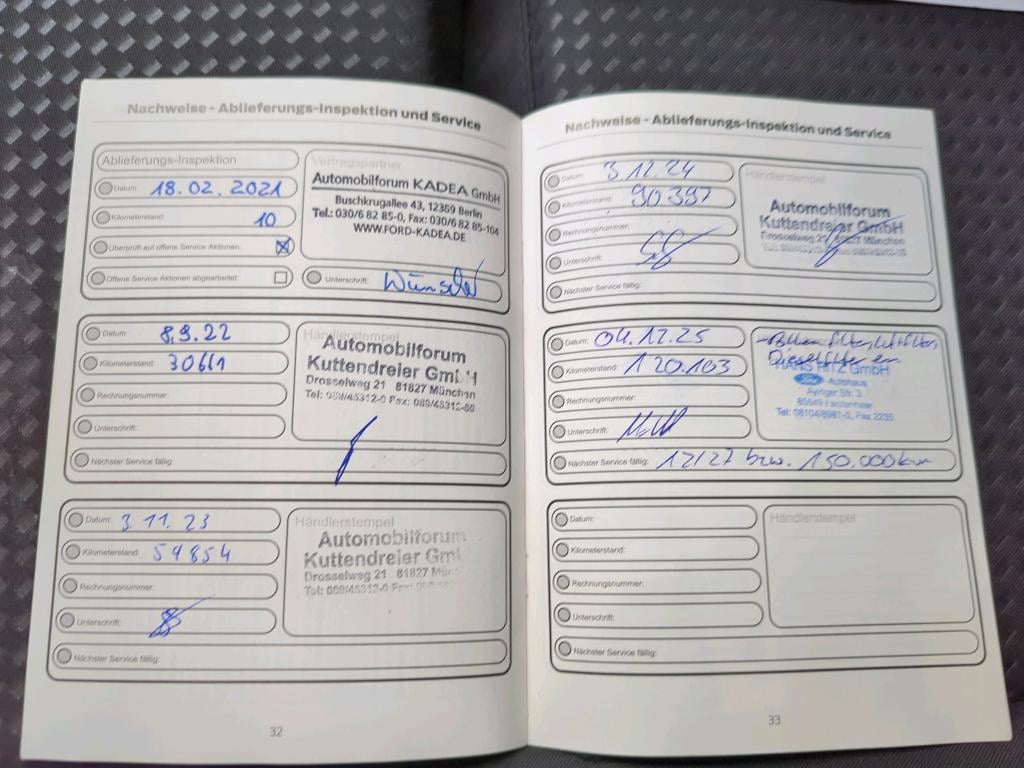 Nachweise - Ablieferungs-Inspektion und Service
Ablieferungs-Inspektion
Datum: 18.02.2021
Kilometerstand: 10
Überprüft auf offene Service Aktionen:
Offene Service Aktionen abgearbeitet:
Vertragspartner
Automobilforum KADEA GmbH
Buschkrugallee 43, 12359 Berlin
Tel.: 030/6 82 85-0, Fax: 030/6 82 85-104
WWW.FORD-KADEA.DE
Unterschrift:
Datum: 8.9.22
Kilometerstand: 30661
Rechnungsnummer:
Unterschrift:
Nächster Service fällig:
Händlerstempel
Automobilforum
Kuttendreier GmbH
Drosselweg 21 81827 München
Tel: 089/45312-0 Fax: 089/45312-60
Datum: 3.11.23
Kilometerstand: 59854
Rechnungsnummer:
Unterschrift:
Nächster Service fällig:
Händlerstempel
Automobilforum
Kuttendreier Gm
Drosselweg 21 81827 Mün
Tel: 089/45312-0
32
Nachweise - Ablieferungs-Inspektion und Service
Datum: 3.12.24
Kilometerstand: 90397
Rechnungsnummer:
Unterschrift:
Nächster Service fällig:
Händlerstempel
Automobilforum
Kuttendreier GmbH
Drosselweg 21 81827 München
Datum: 04.12.25
Kilometerstand: 120.103
Rechnungsnummer:
Unterschrift:
Nächster Service fällig: 12/27 bzw. 150.000km
Pollenfilter, Luftfilter,
Dieselfilter er.
HANS RITZ GmbH
Ford Autohaus
Ayinger Str. 3
Tel: 08104/8981-0, Fax 2235
Datum:
Kilometerstand:
Rechnungsnummer:
Unterschrift:
Nächster Service fällig:
Händlerstempel
33